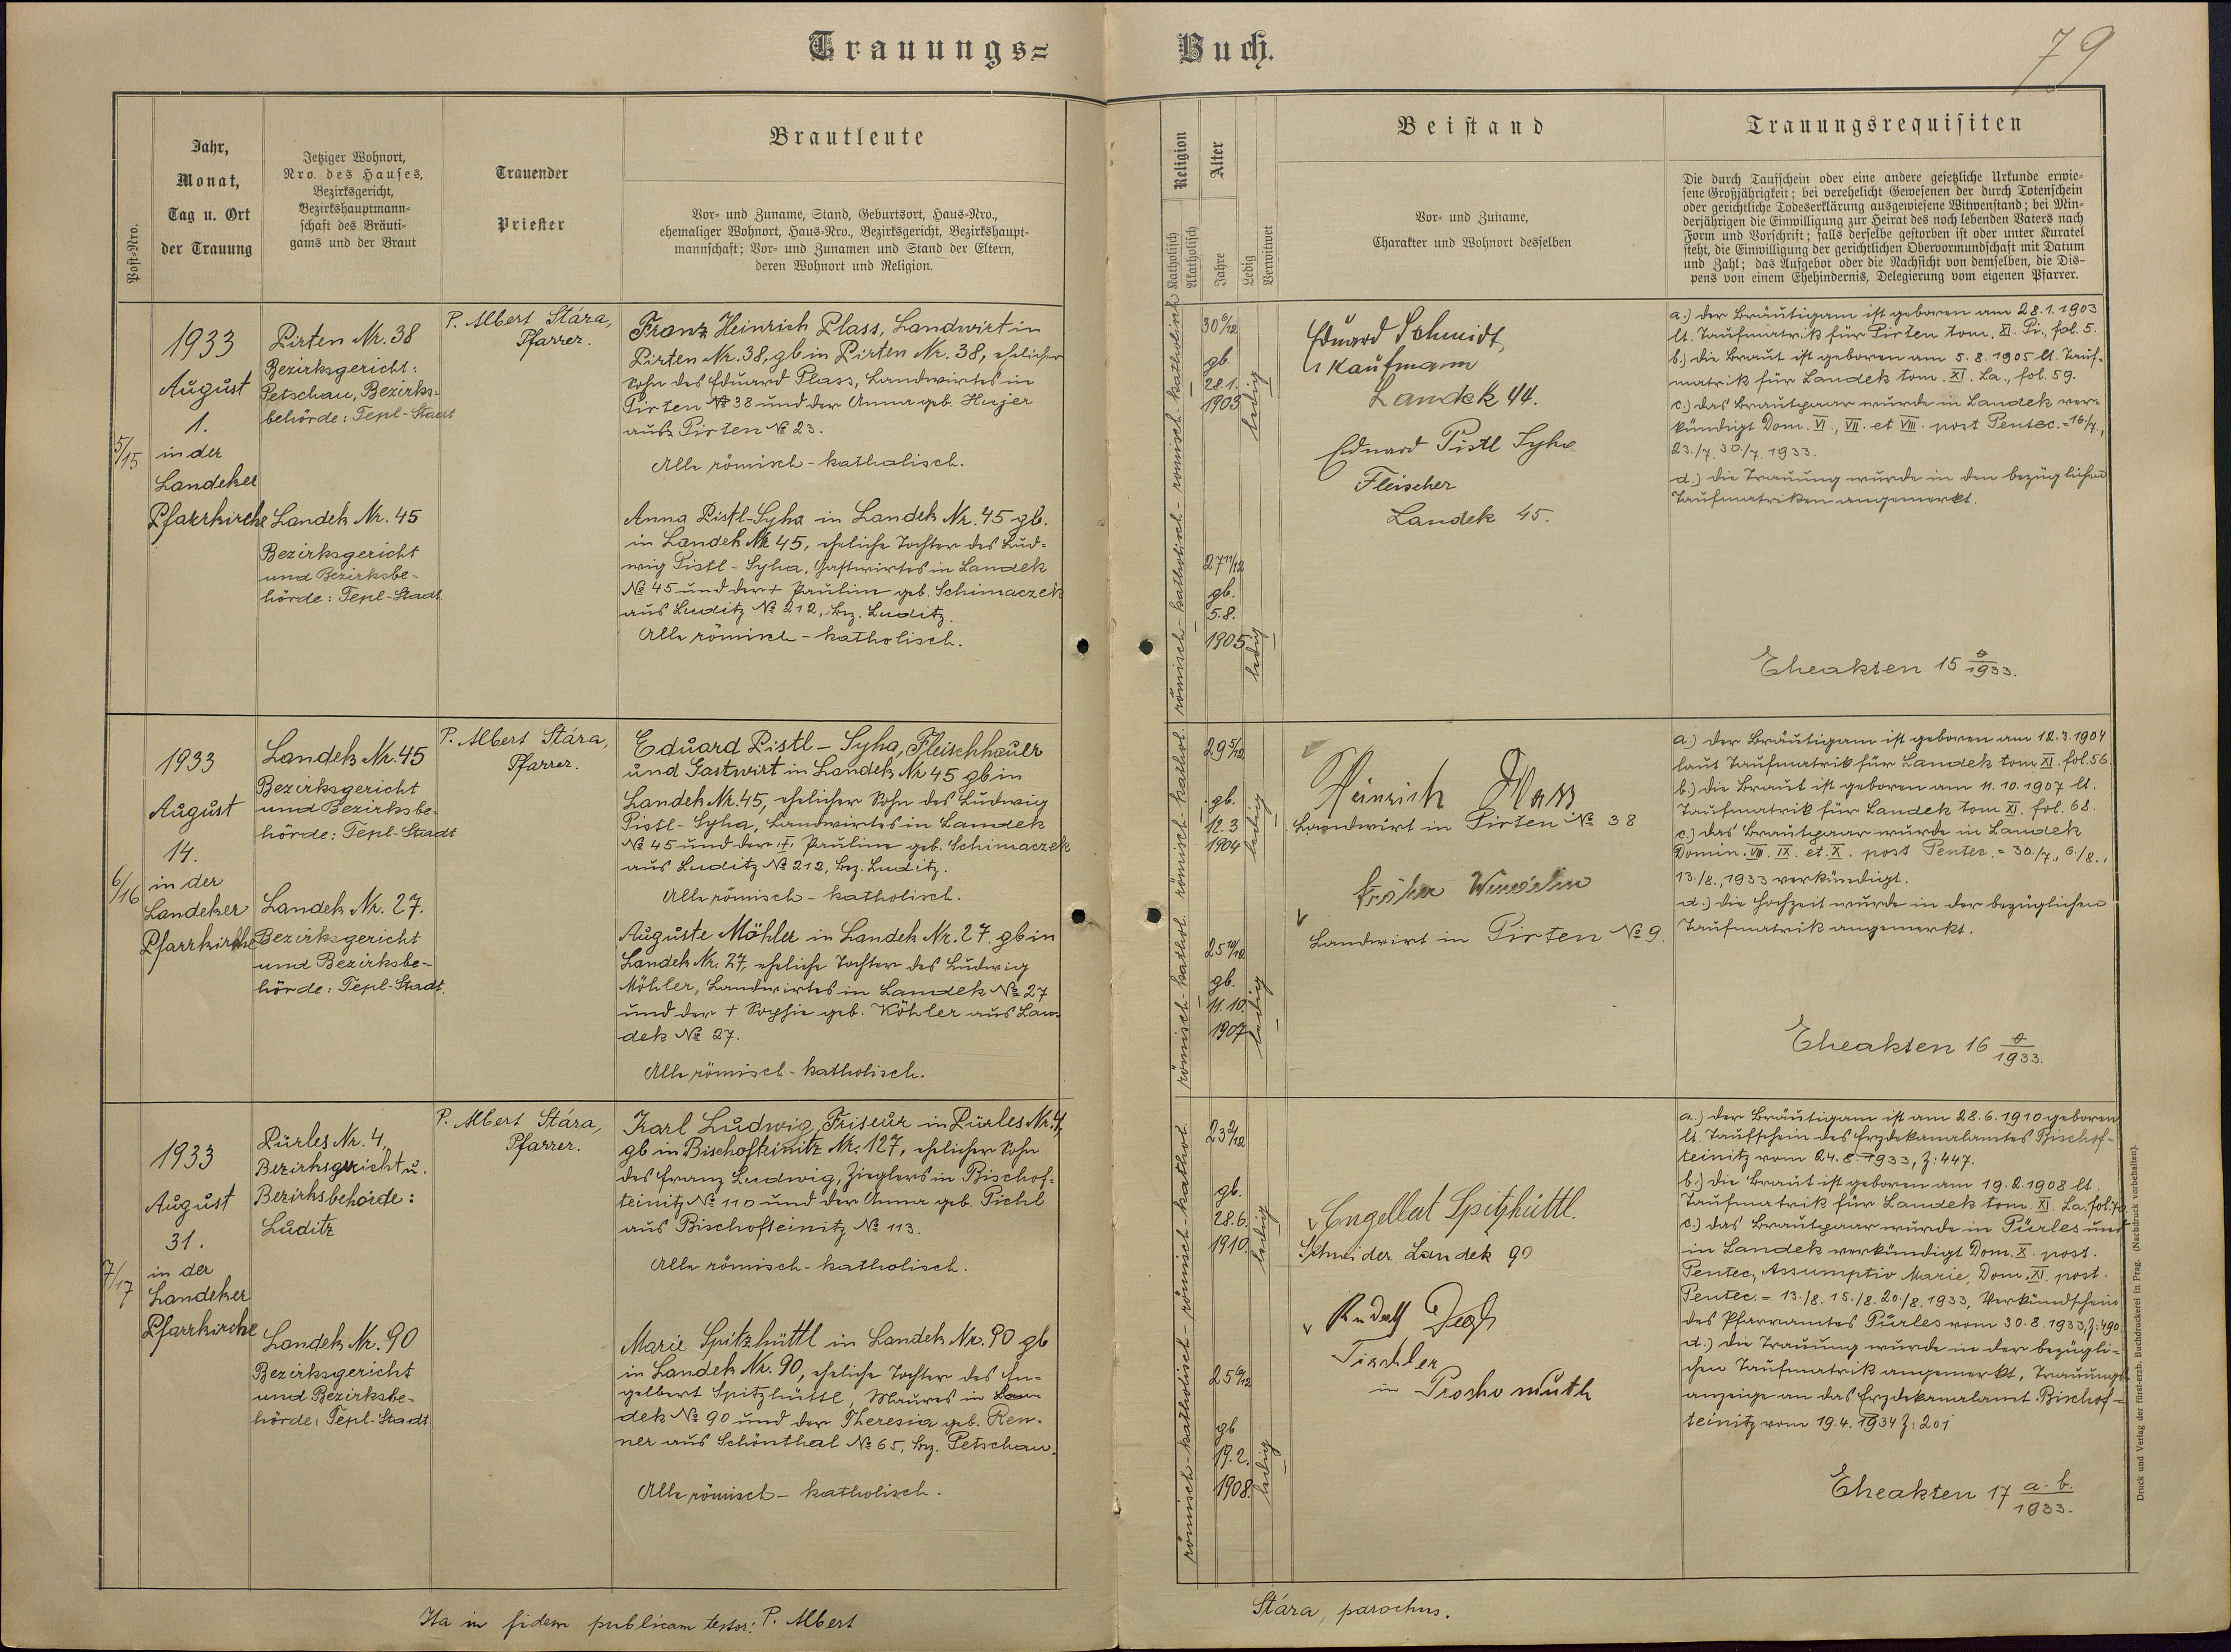 Trauungs=
Buch.
79
Post-Nro.
Jahr,
Monat,
Tag u. Ort
der Trauung
Jetziger Wohnort,
Nro. des Hauses,
Bezirksgericht,
Bezirkshauptmann=
schaft des Bräuti=
gams und der Braut
Trauender
Priester
Brautleute
Vor= und Zuname, Stand, Geburtsort, Haus=Nro.,
ehemaliger Wohnort, Haus=Nro., Bezirksgericht, Bezirkshaupt=
mannschaft; Vor= und Zunamen und Stand der Eltern,
deren Wohnort und Religion.
Religion
Katholisch
Akatholisch
Alter
Jahre
Ledig
Verwitwet
Beistand
Vor= und Zuname,
Charakter und Wohnort desselben
Trauungsrequisiten
Die durch Taufschein oder eine andere gesetzliche Urkunde erwie=
sene Großjährigkeit; bei verehelicht Gewesenen der durch Totenschein
oder gerichtliche Todeserklärung ausgewiesene Witwenstand; bei Min=
derjährigen die Einwilligung zur Heirat des noch lebenden Vaters nach
Form und Vorschrift; falls derselbe gestorben ist oder unter Kuratel
steht, die Einwilligung der gerichtlichen Obervormundschaft mit Datum
und Zahl; das Aufgebot oder die Nachsicht von demselben, die Dis=
pens von einem Ehehindernis, Delegierung vom eigenen Pfarrer.
5/15
1933
August
1.
in der
Landeker
Pfarrkirche
Pirten Nr. 38
Bezirksgericht:
Petschau, Bezirks-
behörde: Tepl-Stadt
Landek Nr. 45
Bezirksgericht
und Bezirksbe-
hörde: Tepl-Stadt.
P. Albert Stára,
Pfarrer.
Franz Heinrich Plass, Landwirt in
Pirten Nr. 38, gb in Pirten Nr. 38, ehelicher
Sohn des Eduard Plass, Landwirtes in
Pirten № 38 und der Anna geb. Hujer
aus Pirten № 23.
Alle römisch-katholisch.
Anna Pistl-Syha in Landek Nr. 45 gb.
in Landek Nr 45, eheliche Tochter des Lud=
wig Pistl-Syha, Gastwirtes in Landek
№ 45 und der + Pauline geb. Schimaczek
aus Luditz № 212, Bez. Luditz.
Alle römisch-katholisch.
römisch-katholisch
30 6/12
gb.
28.1.
1903
ledig
römisch-katholisch
27 11/12
gb.
5.8.
1905
ledig
Eduard Schmidt
Kaufmann
Landek 44.
Eduard Pistl Syha
Fleischer
Landek 45.
a.) der Bräutigam ist geboren am 28.1.1903
lt. Taufmatrik für Pirten tom. XI. Pi., fol. 5.
b.) die Braut ist geboren am 5.8.1905 lt. Tauf-
matrik für Landek tom. XI. La., fol. 59.
c.) das Brautpaar wurde in Landek ver-
kündigt Dom. VI., VII. et VIII. post Pentec. = 16/7.,
23./7. 30./7. 1933.
d.) die Trauung wurde in den bezüglichen
Taufmatriken angemerkt.
Eheakten 15 /1933.
6/16
1933
August
14.
in der
Landeker
Pfarrkirche
Landek Nr. 45
Bezirksgericht
und Bezirksbe-
hörde: Tepl-Stadt
Landek Nr. 27.
Bezirksgericht
und Bezirksbe-
hörde: Tepl-Stadt.
P. Albert Stára,
Pfarrer.
Eduard Pistl-Syha, Fleischhauer
und Gastwirt in Landek Nr 45 gb in
Landek Nr. 45, ehelicher Sohn des Ludwig
Pistl-Syha, Landwirtes in Landek
№ 45 und der + Pauline geb. Schimaczek
aus Luditz № 212, Bez. Luditz.
Alle römisch-katholisch.
Auguste Möhler in Landek Nr. 27. gb in
Landek Nr. 27, eheliche Tochter des Ludwig
Möhler, Landwirtes in Landek № 27
und der + Sophie geb. Köhler aus Lan-
dek № 27.
Alle römisch-katholisch.
römisch-kathol.
29 5/12
gb.
12.3
1904
ledig
römisch-kathol.
25 10/12
gb.
11.10.
1907
ledig
Heinrich Plass
Landwirt in Pirten № 38
Landwirt in Pirten № 9.
a.) der Bräutigam ist geboren am 12.3.1904
laut Taufmatrik für Landek tom XI. fol. 56.
b.) die Braut ist geboren am 11.10.1907 lt.
Taufmatrik für Landek tom XI. fol. 68.
c.) das Brautpaar wurde in Landek
Domin. VIII. IX. et. X. post Pentec. = 30./7., 6./8.,
13./8., 1933 verkündigt.
d.) die Hochzeit wurde in der bezüglichen
Taufmatrik angemerkt.
Eheakten 16 /1933.
7/17
1933
August
31.
in der
Landeker
Pfarrkirche
Pürles Nr. 4,
Bezirksgericht u.
Bezirksbehörde:
Luditz
Landek Nr. 90
Bezirksgericht
und Bezirksbe-
hörde: Tepl-Stadt
P. Albert Stára,
Pfarrer.
Karl Ludwig, Friseur in Pürles Nr. 4,
gb in Bischofteinitz Nr. 127, ehelicher Sohn
des Franz Ludwig, Zieglers in Bischof-
teinitz № 110 und der Anna geb. Pichl
aus Bischofteinitz № 113.
Alle römisch-katholisch.
Marie Spitzhüttl in Landek Nr. 90 gb
in Landek Nr. 90, eheliche Tochter des En-
gelbert Spitzhüttl, Maurers in Lan-
dek № 90 und der Theresia geb. Ren-
ner aus Schönthal № 65, Bez. Petschau.
Alle römisch-katholisch.
römisch-kathol.
23 2/12
gb.
28.6.
1910.
ledig
römisch-katholisch
25 6/12
gb
19.2.
1908.
ledig
Engelbert Spitzhüttl.
Schneider Landek 90
Rudolf
Tischler
in Proschomuth
a.) der Bräutigam ist am 28.6.1910 geboren
lt. Taufschein des Erzdekanalamtes Bischof-
teinitz vom 24.8.1933, Z: 447.
b.) die Braut ist geboren am 19.2.1908 lt.
Taufmatrik für Landek tom. XI. La. fol. 70
c.) das Brautpaar wurde in Pürles und
in Landek verkündigt Dom. X. post.
Pentec., Assumptio Marie, Dom. XI. post.
Pentec. = 13./8. 15./8. 20./8. 1933, Verkündschein
des Pfarramtes Pürles vom 30.8.1933, Z: 490
d.) die Trauung wurde in der bezügli-
chen Taufmatrik angemerkt, Trauungs
anzeige an das Erzdekanalamt Bischof-
teinitz vom 19.4.1934 Z: 201
Eheakten 17 a-b./1933.
Druck und Verlag der fürst-erzb. Buchdruckerei in Prag. (Nachdruck vorbehalten).
Ita in fidem publicam testor: P. Albert
Stára, parochus.